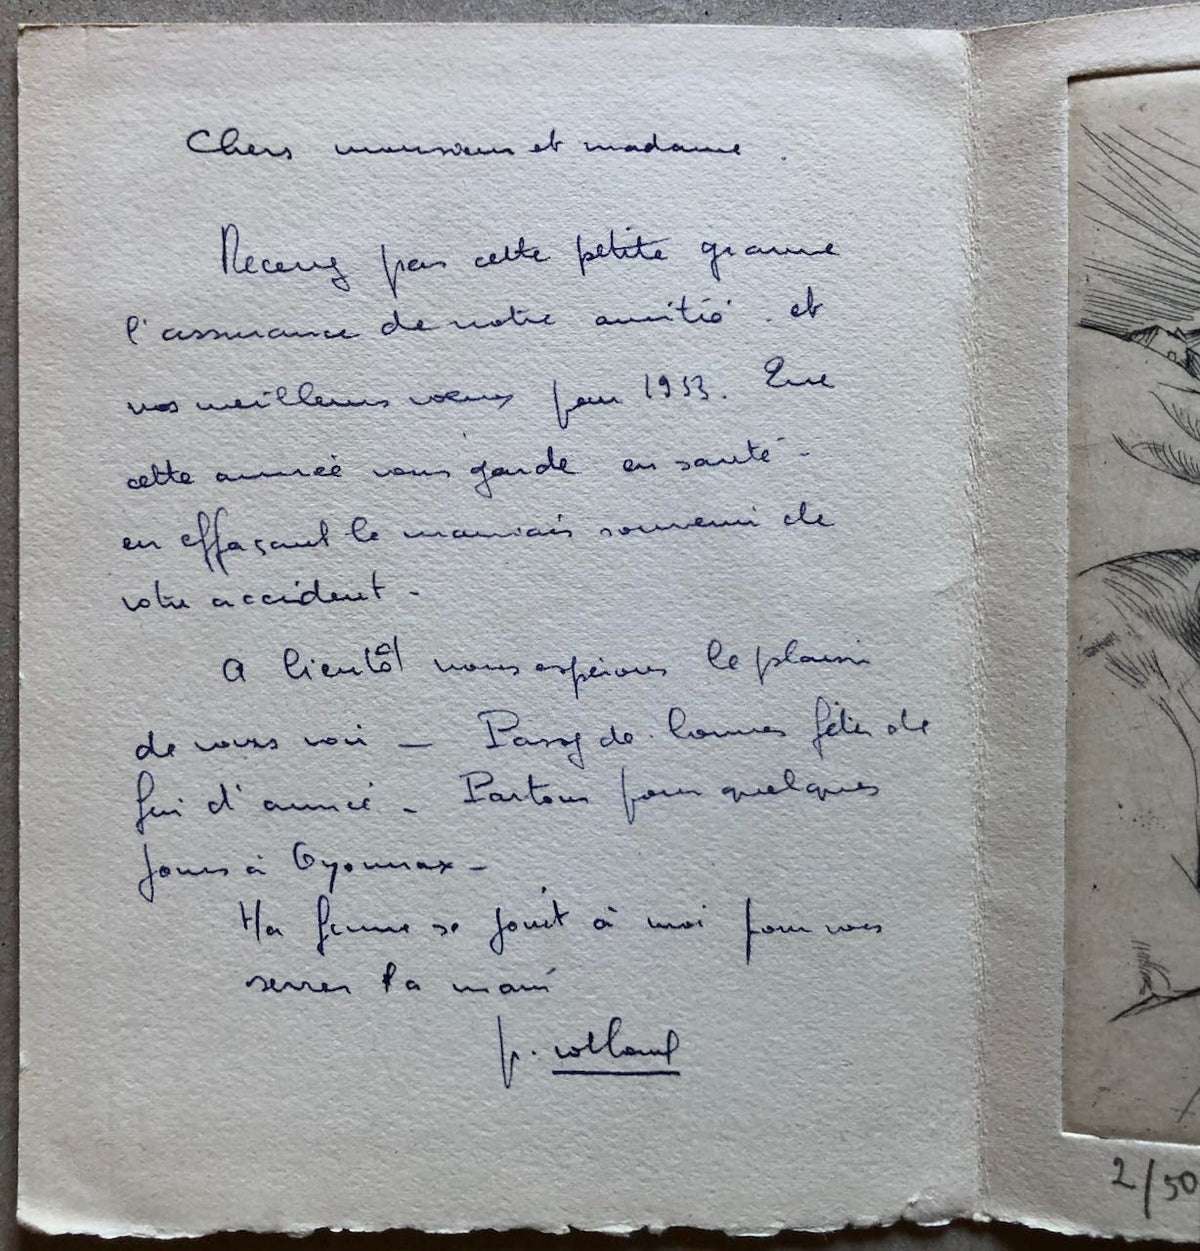 Chers monsieur et madame.
Recevez par cette petite gravure
l'assurance de notre amitié. et
nos meilleurs voeux pour 1953. Que
cette année vous garde en santé -
en effaçant le mauvais souvenir de
votre accident -
A bientôt nous espérons le plaisir
de vous voir — Passez de bonnes fêtes de
fin d'année - Partons pour quelques
jours à Oyonnax -
Ma femme se joint à moi pour vous
serrer la main
p. rolland
2/50